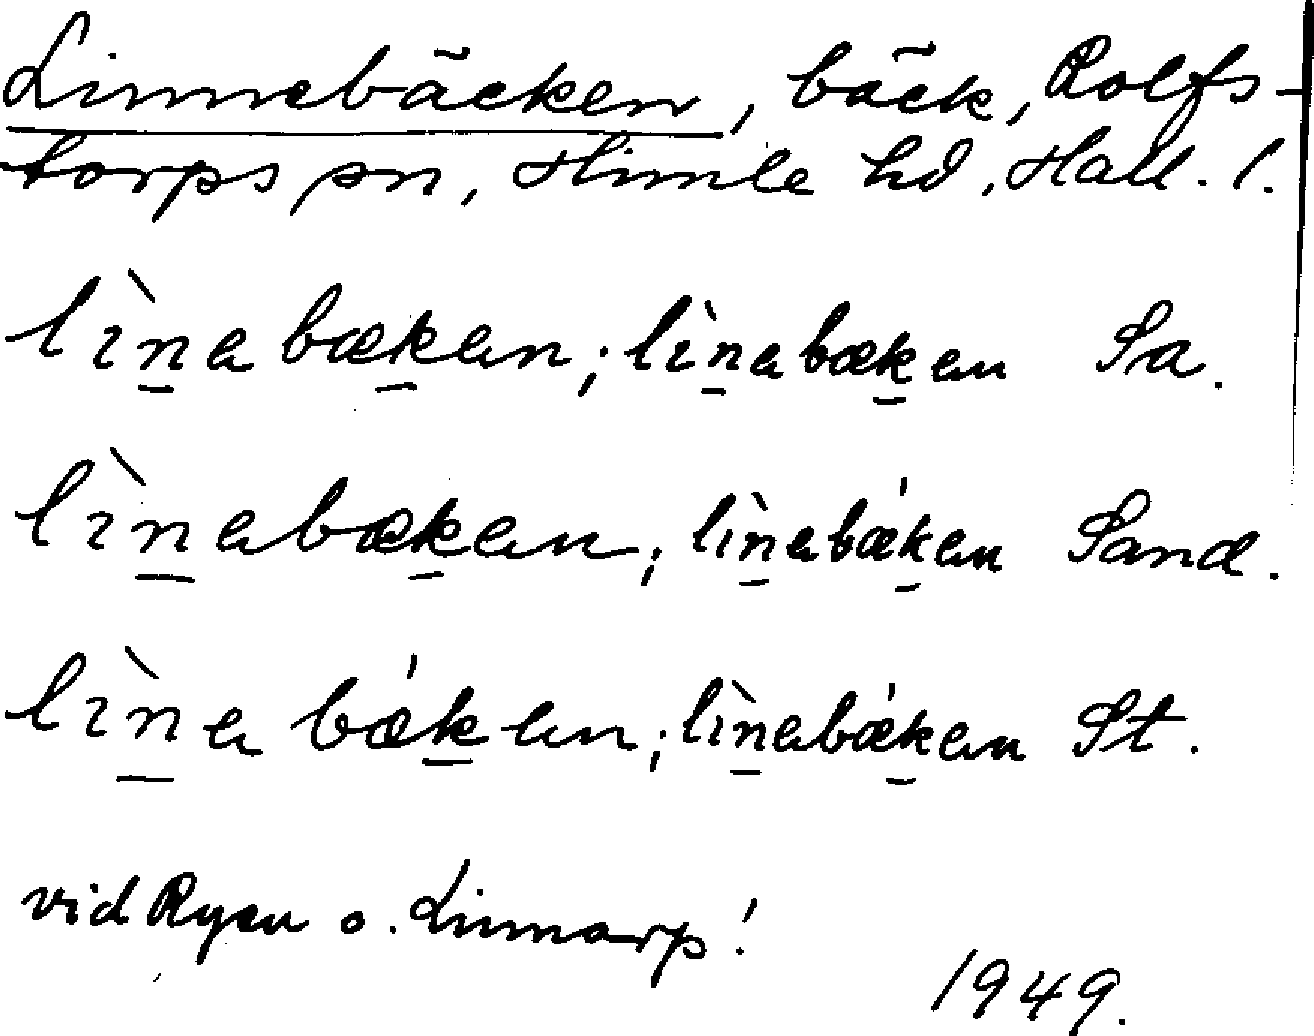 Linnebäcken, bäck, Rolfs-
torps sn, Himle hd, Hall. l.
lìṉabæḵan; lìṉabæḵan Sa.
lìṉabæḵan; lìṉabǽḵan Sand.
lìṉabǽḵan; lìṉabǽḵan St.
vid Ryen o. Linnarp!
1949.